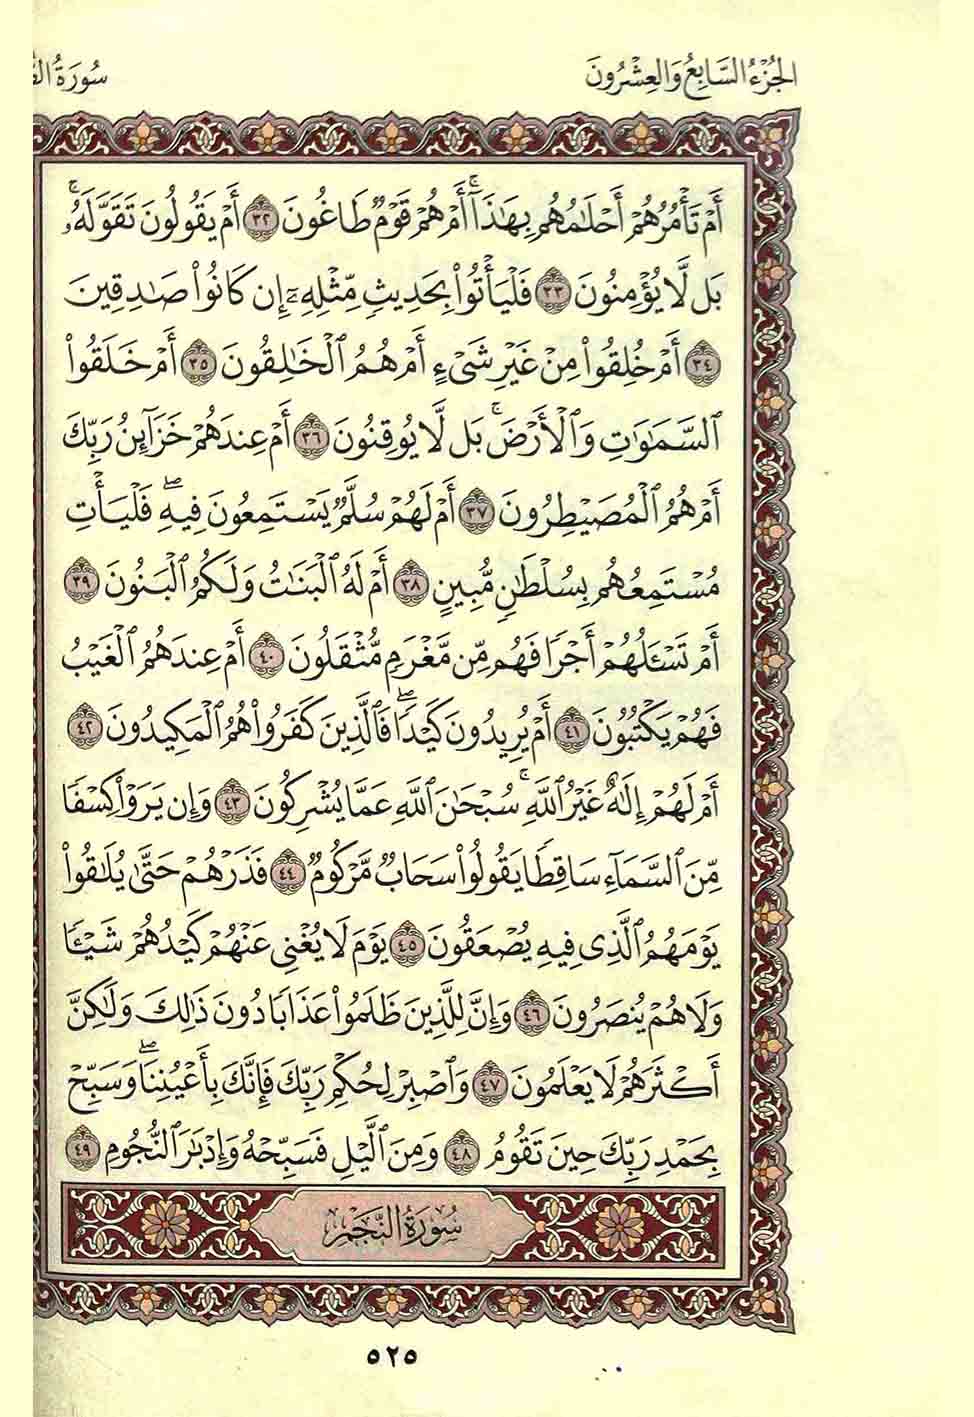 الجُزْءُ السَّابِعُ وَالعِشْرُونَ
سُورَةُ
أَمۡ تَأۡمُرُهُمۡ أَحۡلَٰمُهُم بِهَٰذَآۚ أَمۡ هُمۡ قَوۡمٞ طَاغُونَ ٣٢ أَمۡ يَقُولُونَ تَقَوَّلَهُۥۚ
بَل لَّا يُؤۡمِنُونَ ٣٣ فَلۡيَأۡتُواْ بِحَدِيثٖ مِّثۡلِهِۦٓ إِن كَانُواْ صَٰدِقِينَ
٣٤ أَمۡ خُلِقُواْ مِنۡ غَيۡرِ شَيۡءٍ أَمۡ هُمُ ٱلۡخَٰلِقُونَ ٣٥ أَمۡ خَلَقُواْ
ٱلسَّمَٰوَٰتِ وَٱلۡأَرۡضَۚ بَل لَّا يُوقِنُونَ ٣٦ أَمۡ عِندَهُمۡ خَزَآئِنُ رَبِّكَ
أَمۡ هُمُ ٱلۡمُصَۜيۡطِرُونَ ٣٧ أَمۡ لَهُمۡ سُلَّمٞ يَسۡتَمِعُونَ فِيهِۖ فَلۡيَأۡتِ
مُسۡتَمِعُهُم بِسُلۡطَٰنٖ مُّبِينٍ ٣٨ أَمۡ لَهُ ٱلۡبَنَٰتُ وَلَكُمُ ٱلۡبَنُونَ ٣٩
أَمۡ تَسۡـَٔلُهُمۡ أَجۡرٗا فَهُم مِّن مَّغۡرَمٖ مُّثۡقَلُونَ ٤٠ أَمۡ عِندَهُمُ ٱلۡغَيۡبُ
فَهُمۡ يَكۡتُبُونَ ٤١ أَمۡ يُرِيدُونَ كَيۡدٗاۖ فَٱلَّذِينَ كَفَرُواْ هُمُ ٱلۡمَكِيدُونَ ٤٢
أَمۡ لَهُمۡ إِلَٰهٌ غَيۡرُ ٱللَّهِۚ سُبۡحَٰنَ ٱللَّهِ عَمَّا يُشۡرِكُونَ ٤٣ وَإِن يَرَوۡاْ كِسۡفٗا
مِّنَ ٱلسَّمَآءِ سَاقِطٗا يَقُولُواْ سَحَابٞ مَّرۡكُومٞ ٤٤ فَذَرۡهُمۡ حَتَّىٰ يُلَٰقُواْ
يَوۡمَهُمُ ٱلَّذِي فِيهِ يُصۡعَقُونَ ٤٥ يَوۡمَ لَا يُغۡنِي عَنۡهُمۡ كَيۡدُهُمۡ شَيۡـٔٗا
وَلَا هُمۡ يُنصَرُونَ ٤٦ وَإِنَّ لِلَّذِينَ ظَلَمُواْ عَذَابٗا دُونَ ذَٰلِكَ وَلَٰكِنَّ
أَكۡثَرَهُمۡ لَا يَعۡلَمُونَ ٤٧ وَٱصۡبِرۡ لِحُكۡمِ رَبِّكَ فَإِنَّكَ بِأَعۡيُنِنَاۖ وَسَبِّحۡ
بِحَمۡدِ رَبِّكَ حِينَ تَقُومُ ٤٨ وَمِنَ ٱلَّيۡلِ فَسَبِّحۡهُ وَإِدۡبَٰرَ ٱلنُّجُومِ ٤٩
سُورَةُ النَّجۡمِ
٥٢٥